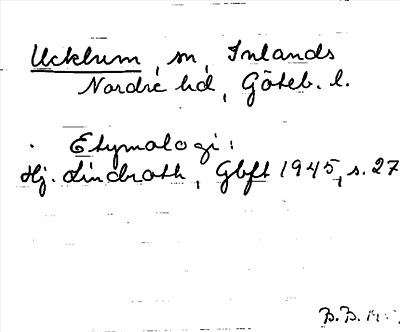 Ucklum, sn, Inlands
Nordre hd, Göteb. l.
Etymologi:
Hj. Lindroth, Gbft 1945, s. 27
B.B.